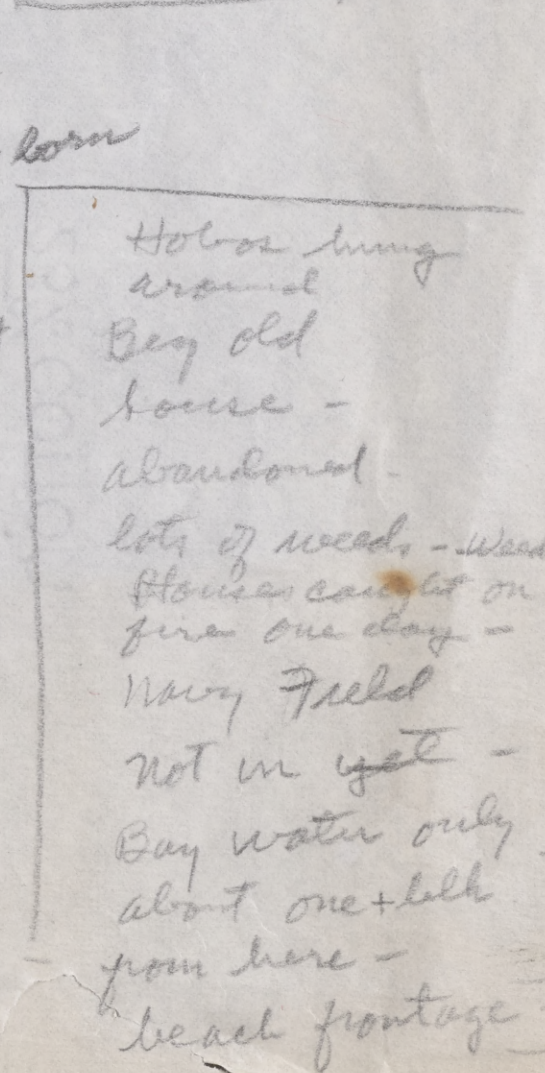 born
Hobos hung
around
Big old
house -
abandoned -
lots of weeds - Weed
Houses caught on
fire one day -
Navy Field
Not in yet -
Bay water only
about one +
from here -
beach frontage